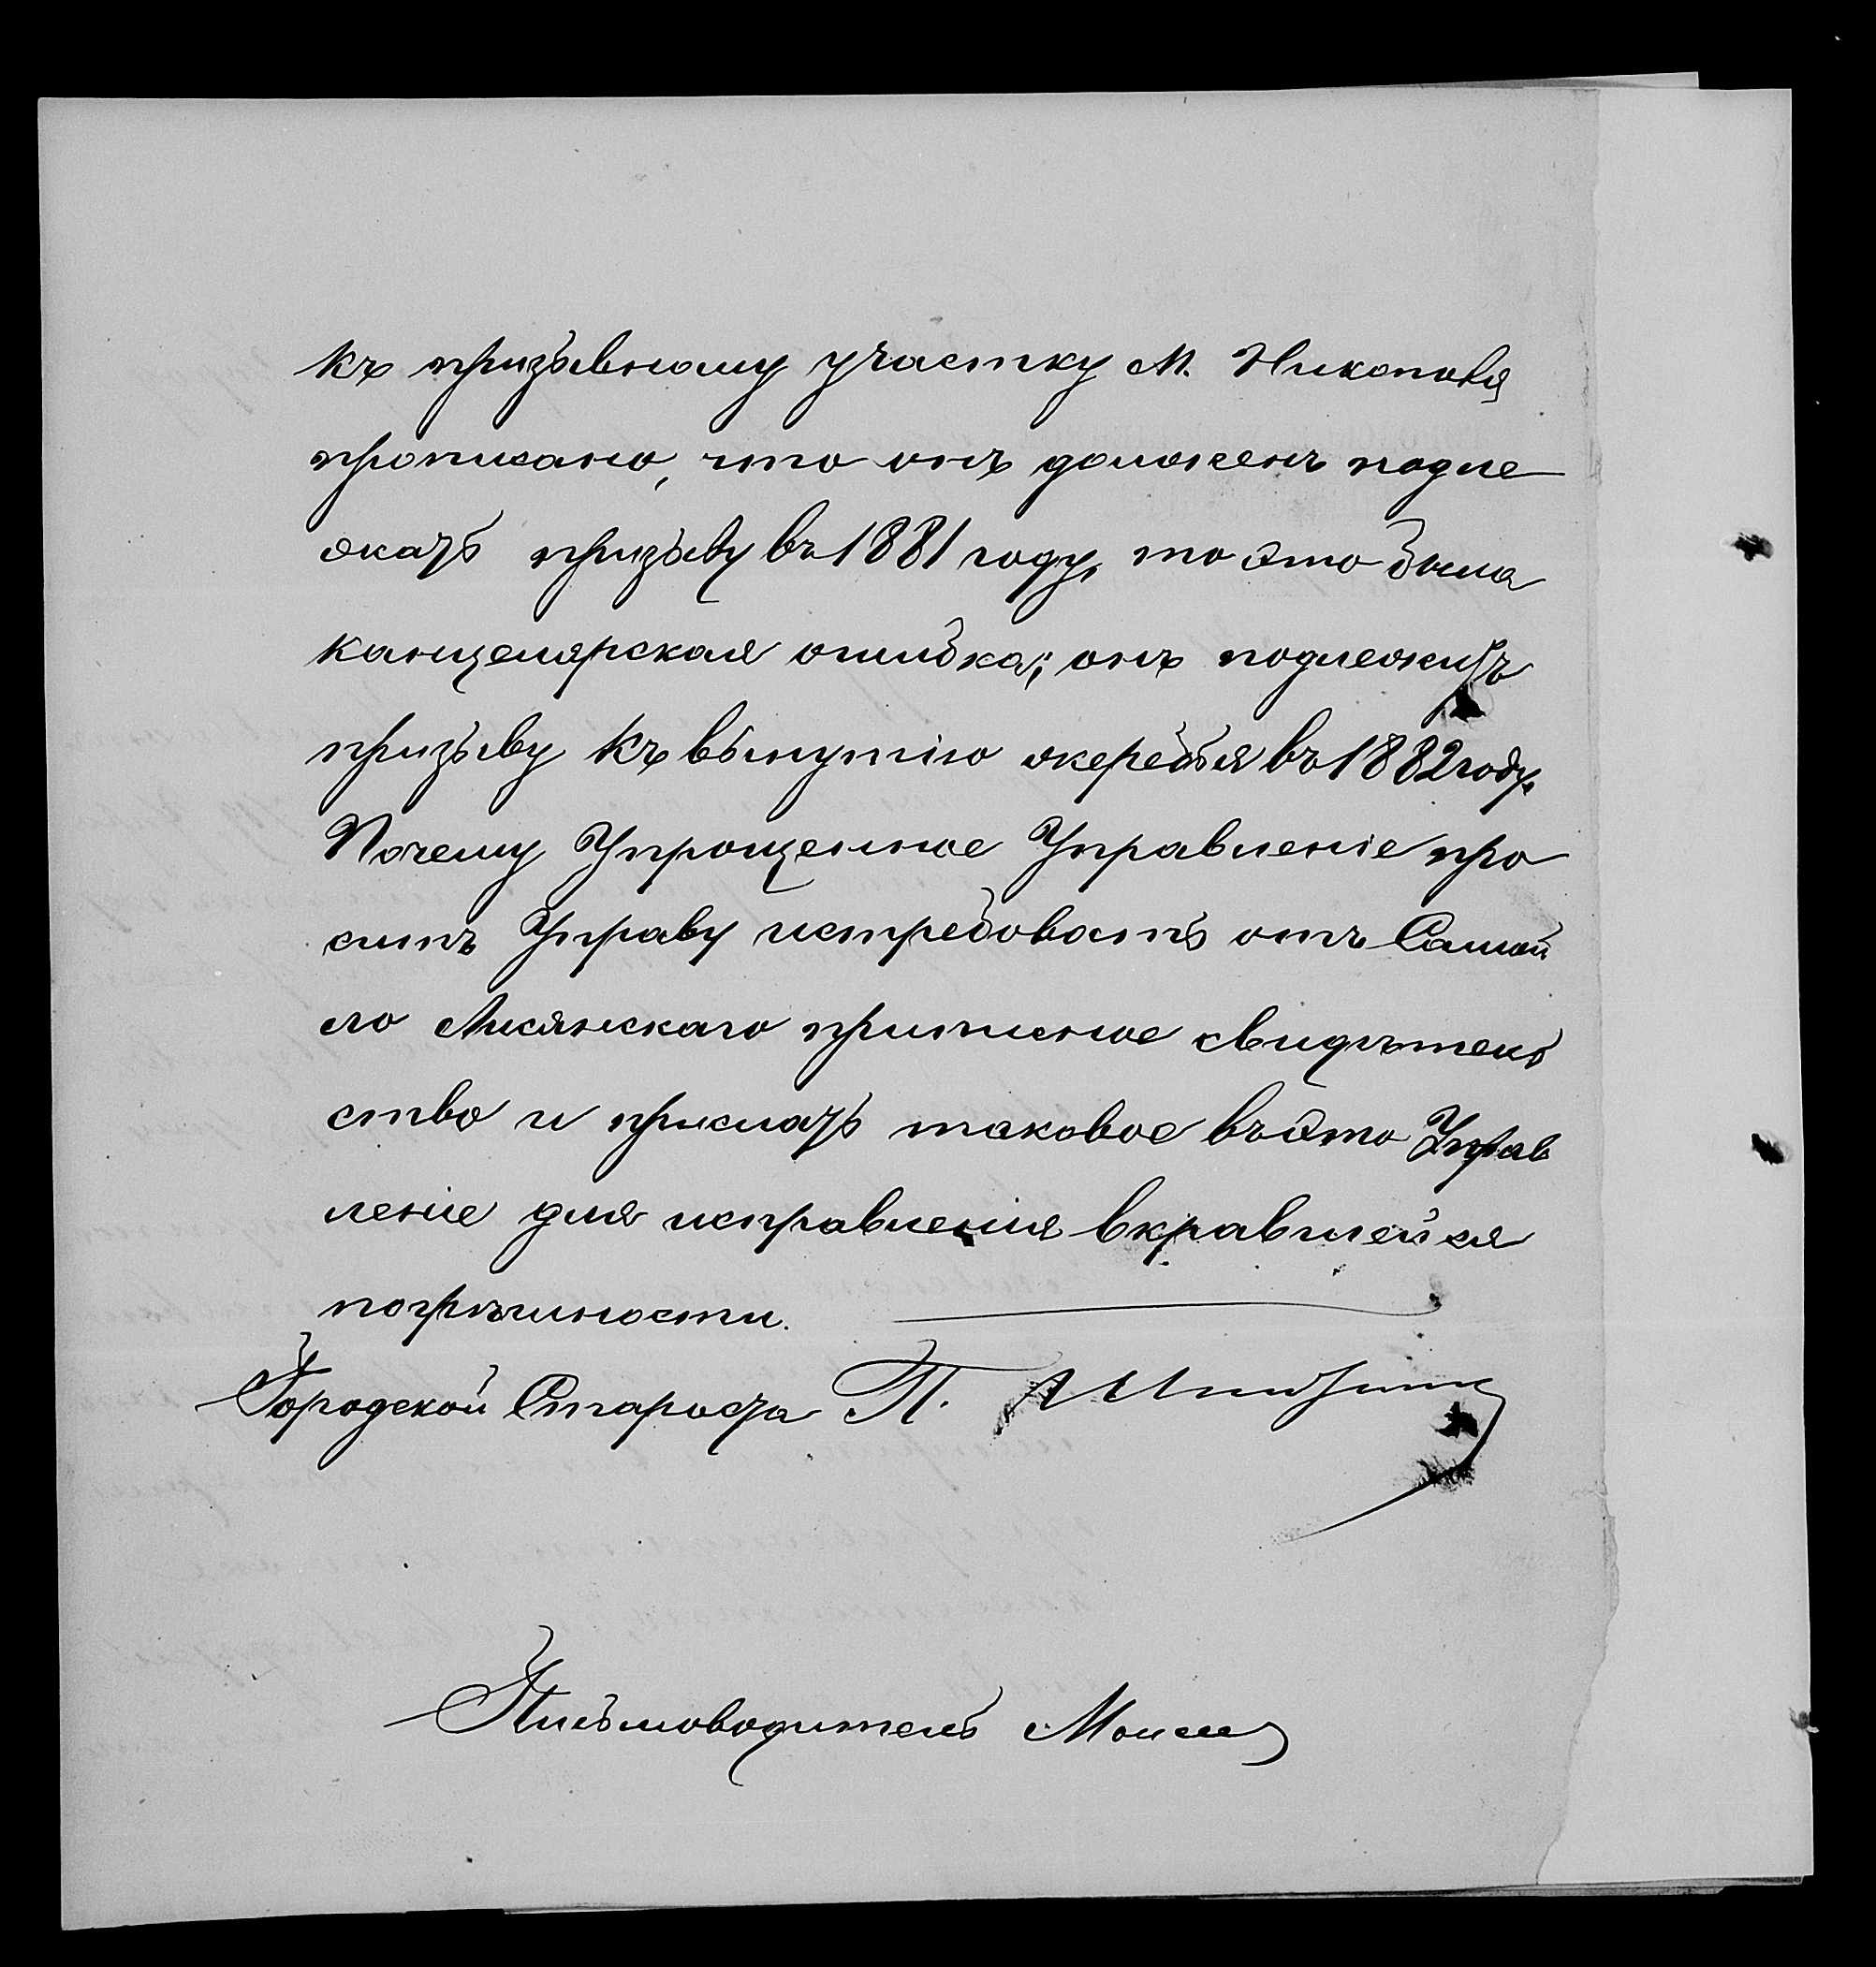 къ призывному участку М. Никополя
прописано, что онъ долженъ подле
жать призыву въ 1881 году, то это была
канцелярская ошибка; онъ подлежитъ
призыву къ вынутію жеребья въ 1882 году.
Почему Упрощенное Управленіе про
ситъ Управу истребовать отъ Самой
ло Лисянскаго приписное свидѣтель
ство и прислать таковое въ это Управ
леніе для исправленія вкравшейся
погрѣшности.
Городской Староста П.
Письмоводитель